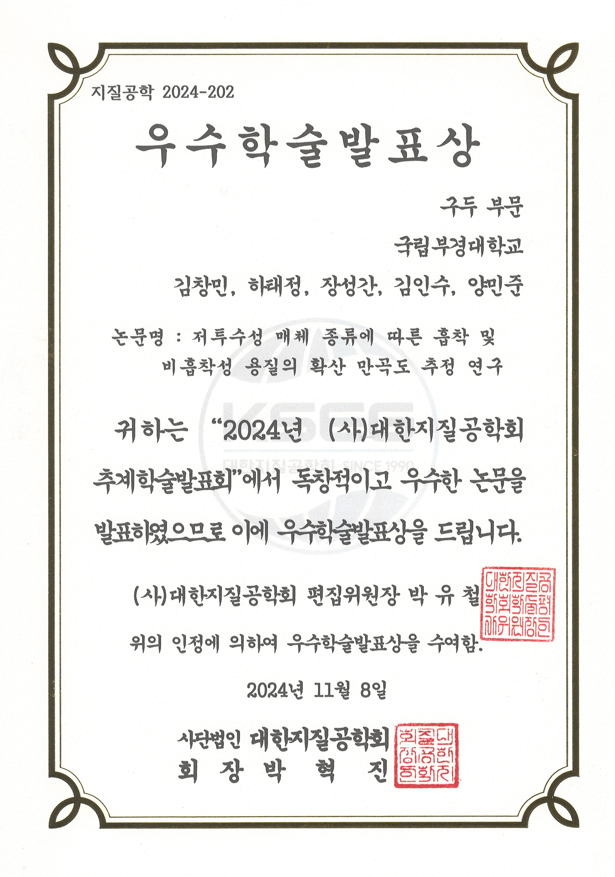 지질공학 2024-202
우수학술발표상
구두 부문
국립부경대학교
김창민, 하태정, 장성간, 김인수, 양민준
논문명 : 저투수성 매체 종류에 따른 흡착 및
비흡착성 용질의 확산 만곡도 추정 연구
KSEG
대한지질공학회 SINCE 1990
귀하는 “2024년 (사)대한지질공학회
추계학술발표회”에서 독창적이고 우수한 논문을
발표하였으므로 이에 우수학술발표상을 드립니다.
(사)대한지질공학회 편집위원장 박 유 철
위의 인정에 의하여 우수학술발표상을 수여함.
2024년 11월 8일
사단법인 대한지질공학회
회 장 박 혁 진